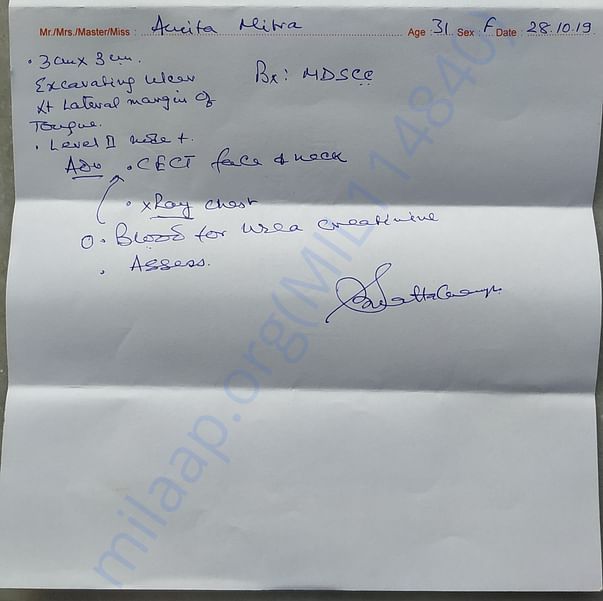 Mr./Mrs./Master/Miss : Mitra Age : 31 Sex : F Date : 28.10.19
• 3cm x 3cm.
Excavating ulcer Bx: MDSCC
Lateral margin of
Tongue.
• Level II node +.
Adv • CECT face & neck
• xRay chest
• Blood for urea creatinine
• Assess.
milaap.org(MIL1148400)